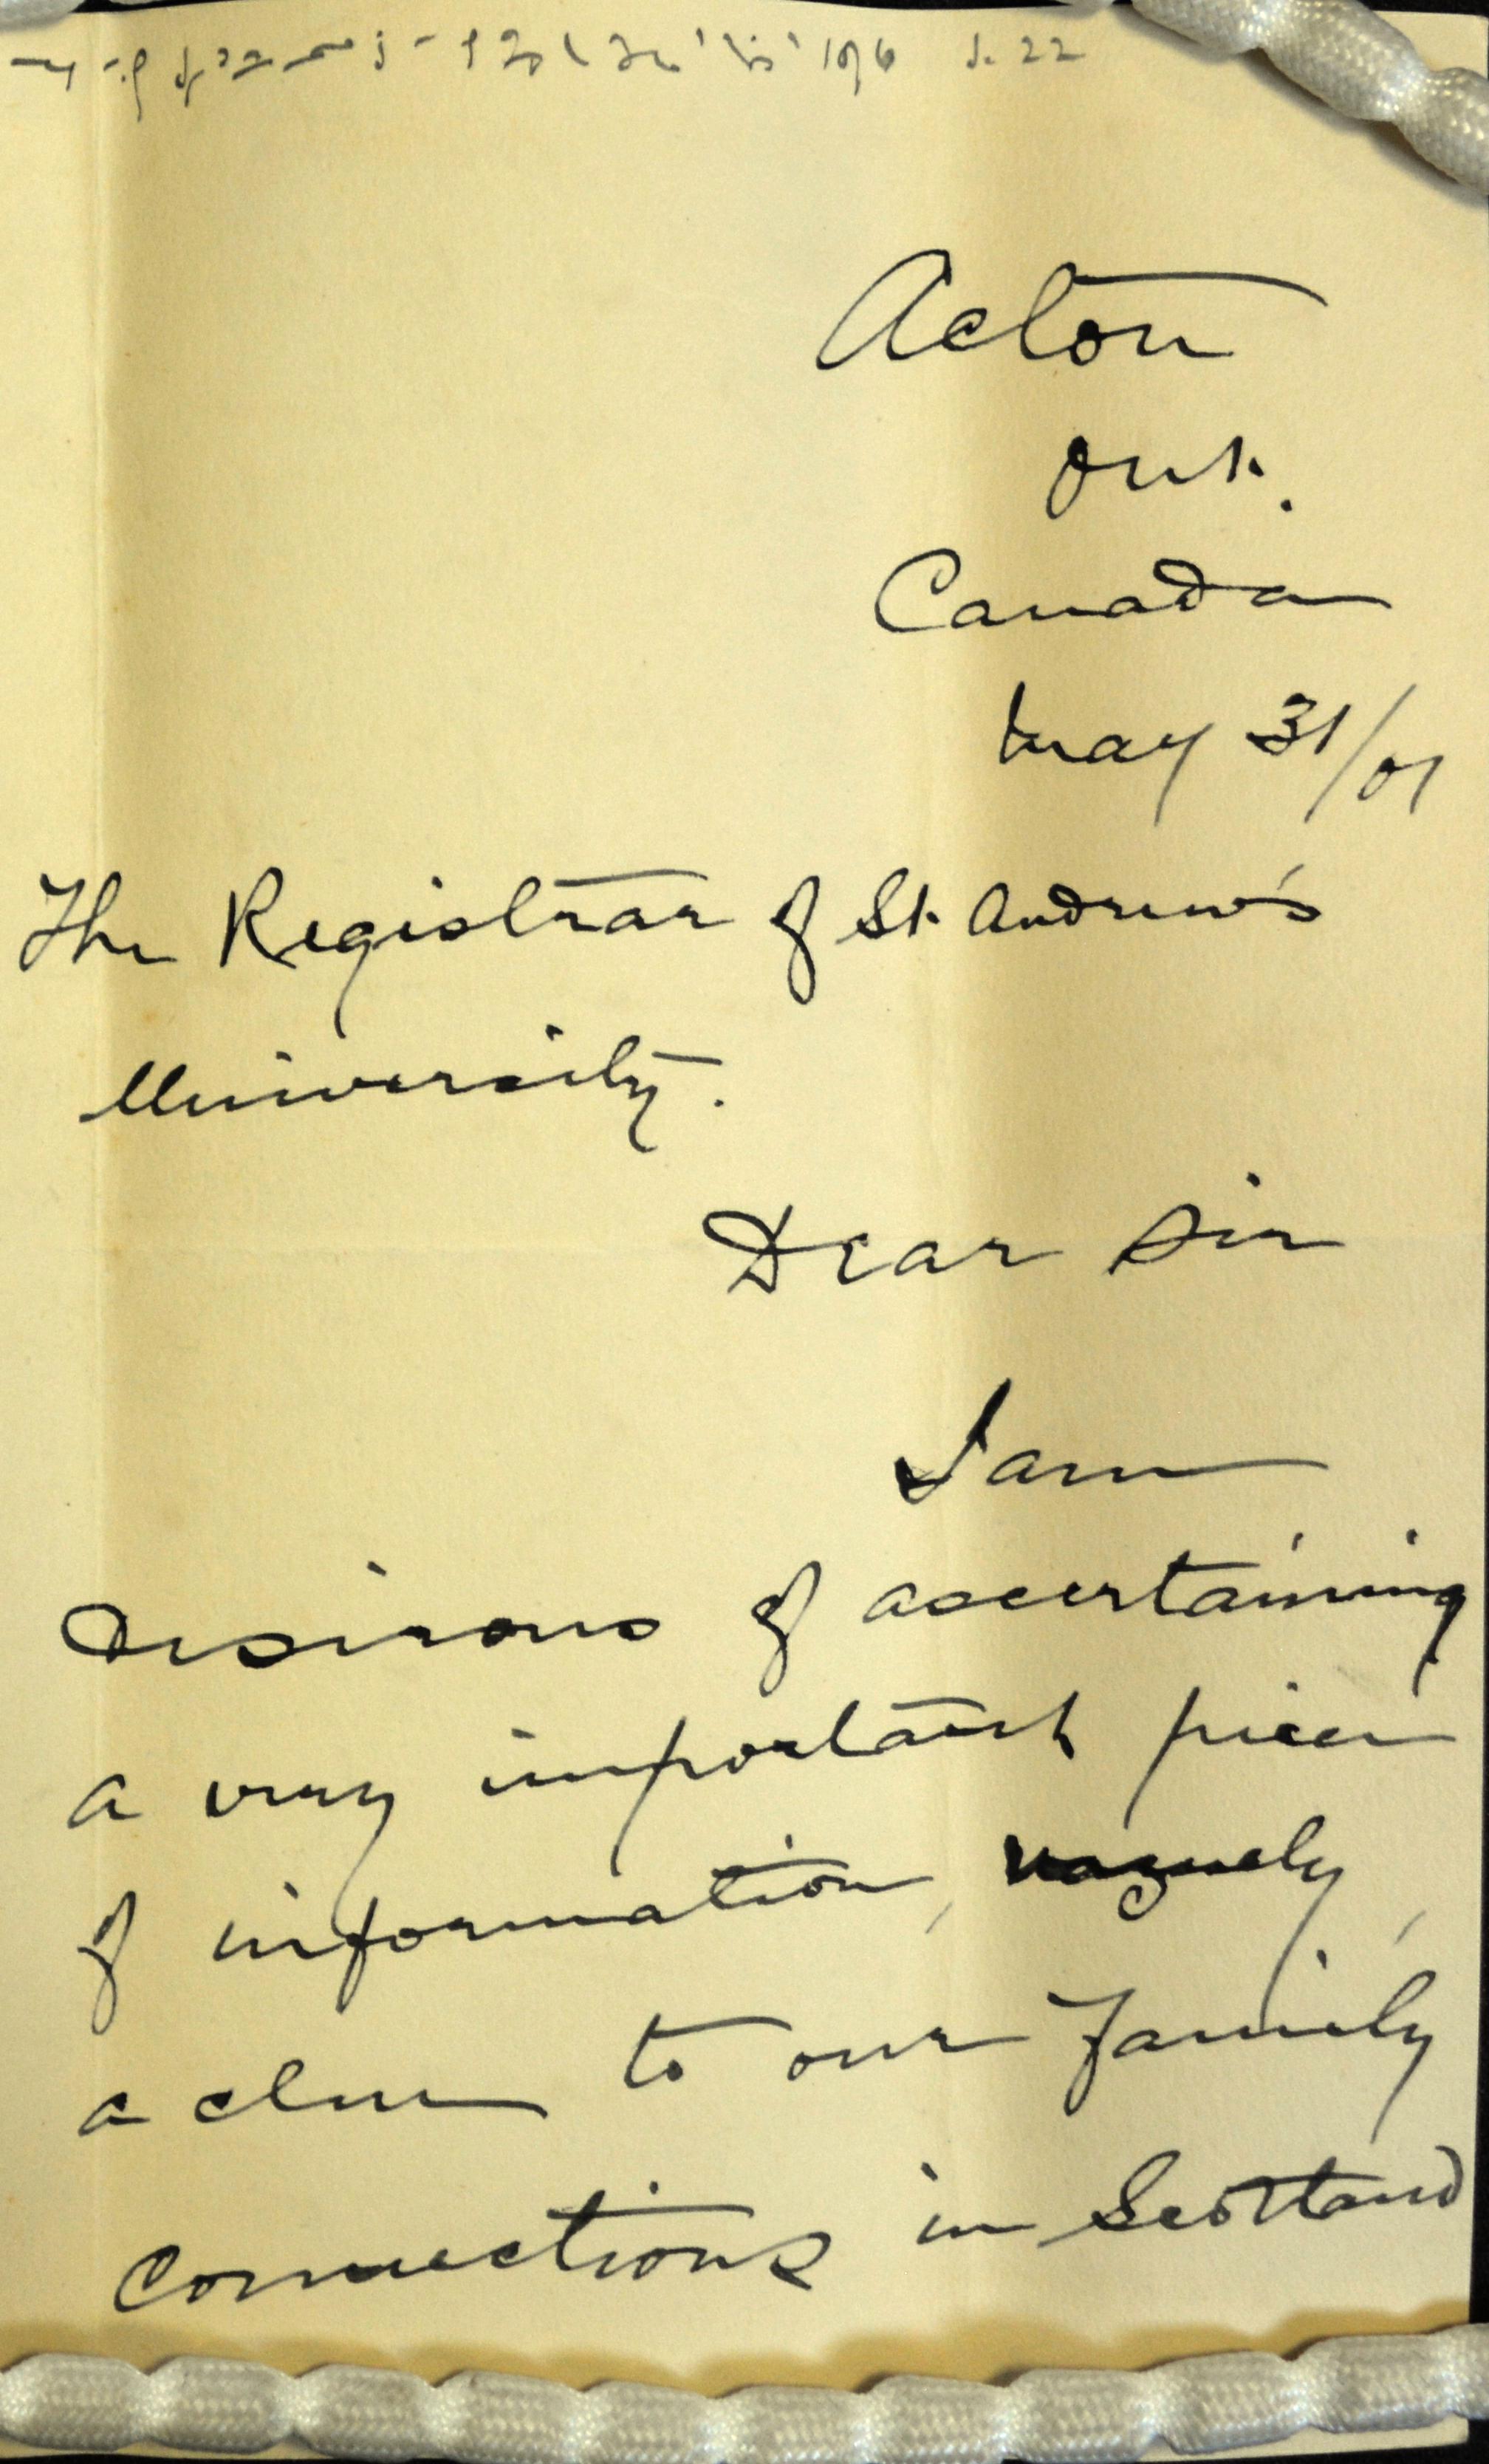 Acton
Ont.
Canada
May 31/01
The Registrar of St. Andrew's
University.
Dear Sir
I am
desirous of ascertaining
a very important piece
of information, vaguely,
a clue to our family
connections in Scotland